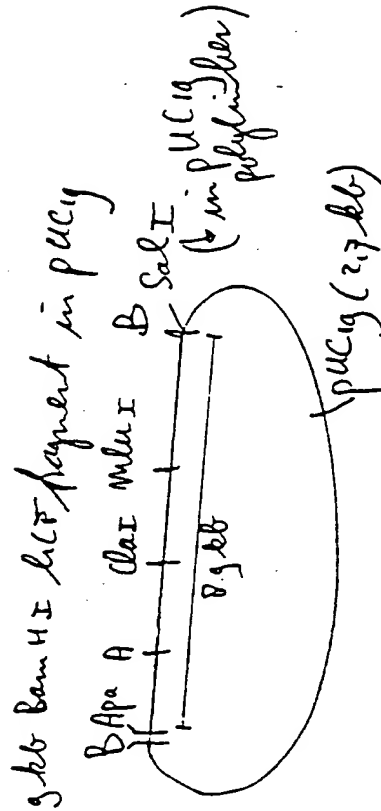 9 kb Bam HI hCF fragment in pUC19
B Apa A ClaI MluI B
Sal I
(↳ in pUC19
polylinker)
8.9 kb
pUC19 (2,7 kb)